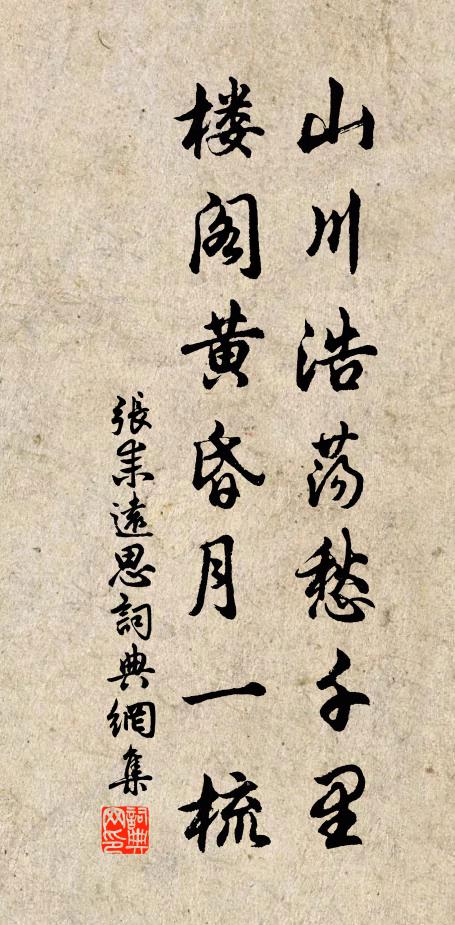 山川浩荡愁千里
楼阁黄昏月一梳
張耒遠思詞典網集
詞典网印